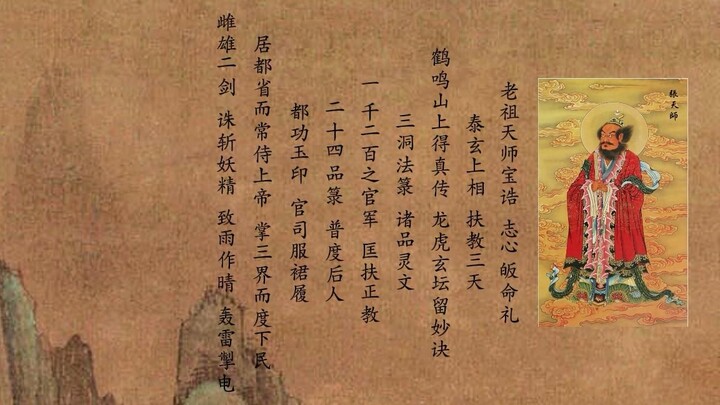 老祖天师宝诰 志心 皈命礼
泰玄上相 扶教三天
鹤鸣山上得真传 龙虎玄坛留妙诀
三洞法箓 诸品灵文
一千二百之官军 匡扶正教
二十四品箓 普度后人
都功玉印 官司服裙履
居都省而常侍上帝 掌三界而度下民
雌雄二剑 诛斩妖精 致雨作晴 轰雷掣电
張天師